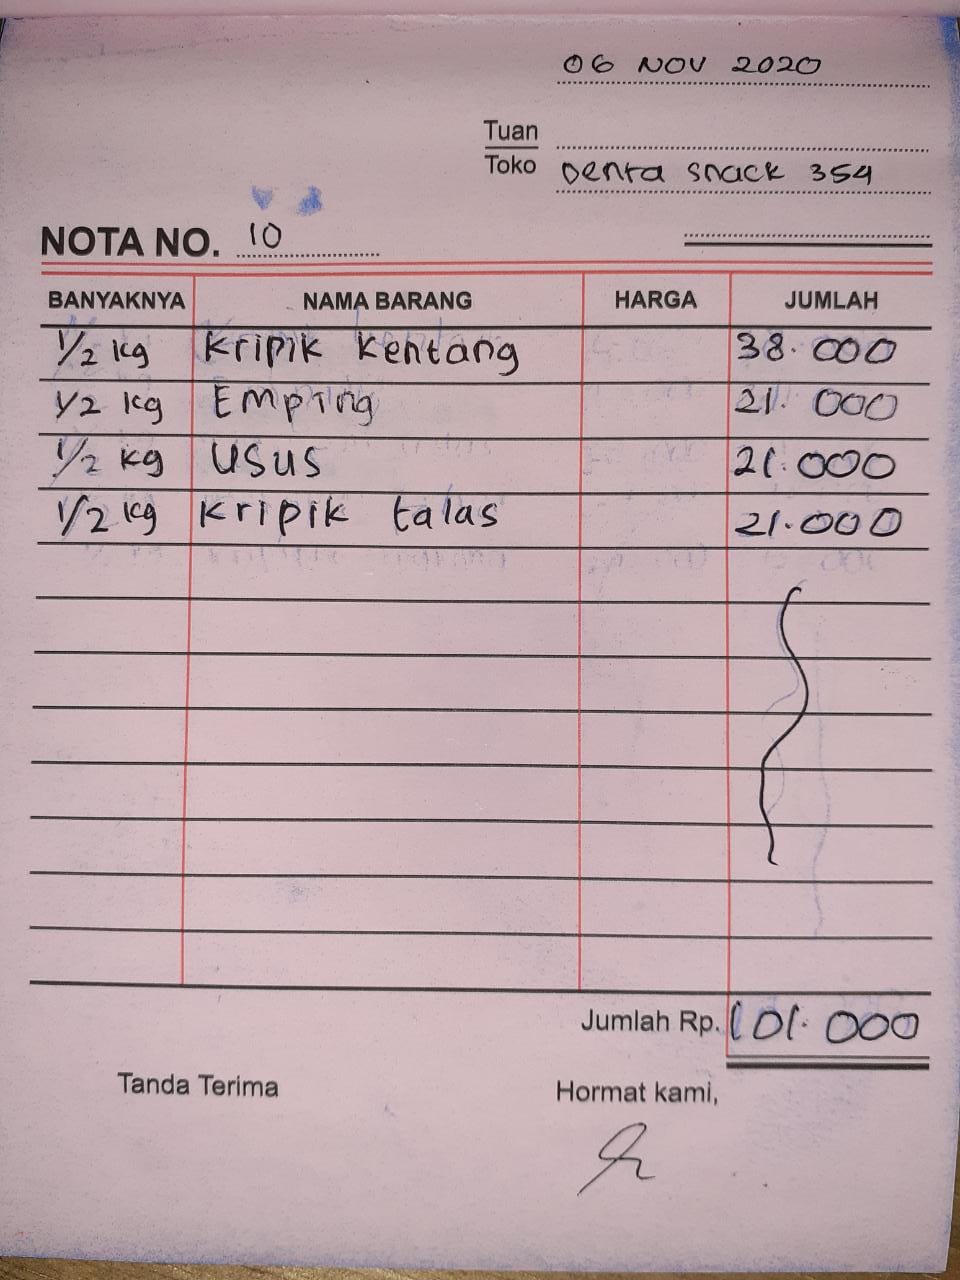 06 NOV 2020
Tuan
Toko Denta snack 354
NOTA NO. 10
BANYAKNYA NAMA BARANG HARGA JUMLAH
1/2 kg Kripik Kentang 38.000
1/2 kg Emping 21.000
1/2 kg Usus 21.000
1/2 kg Kripik talas 21.000
Jumlah Rp. 101.000
Tanda Terima Hormat kami,